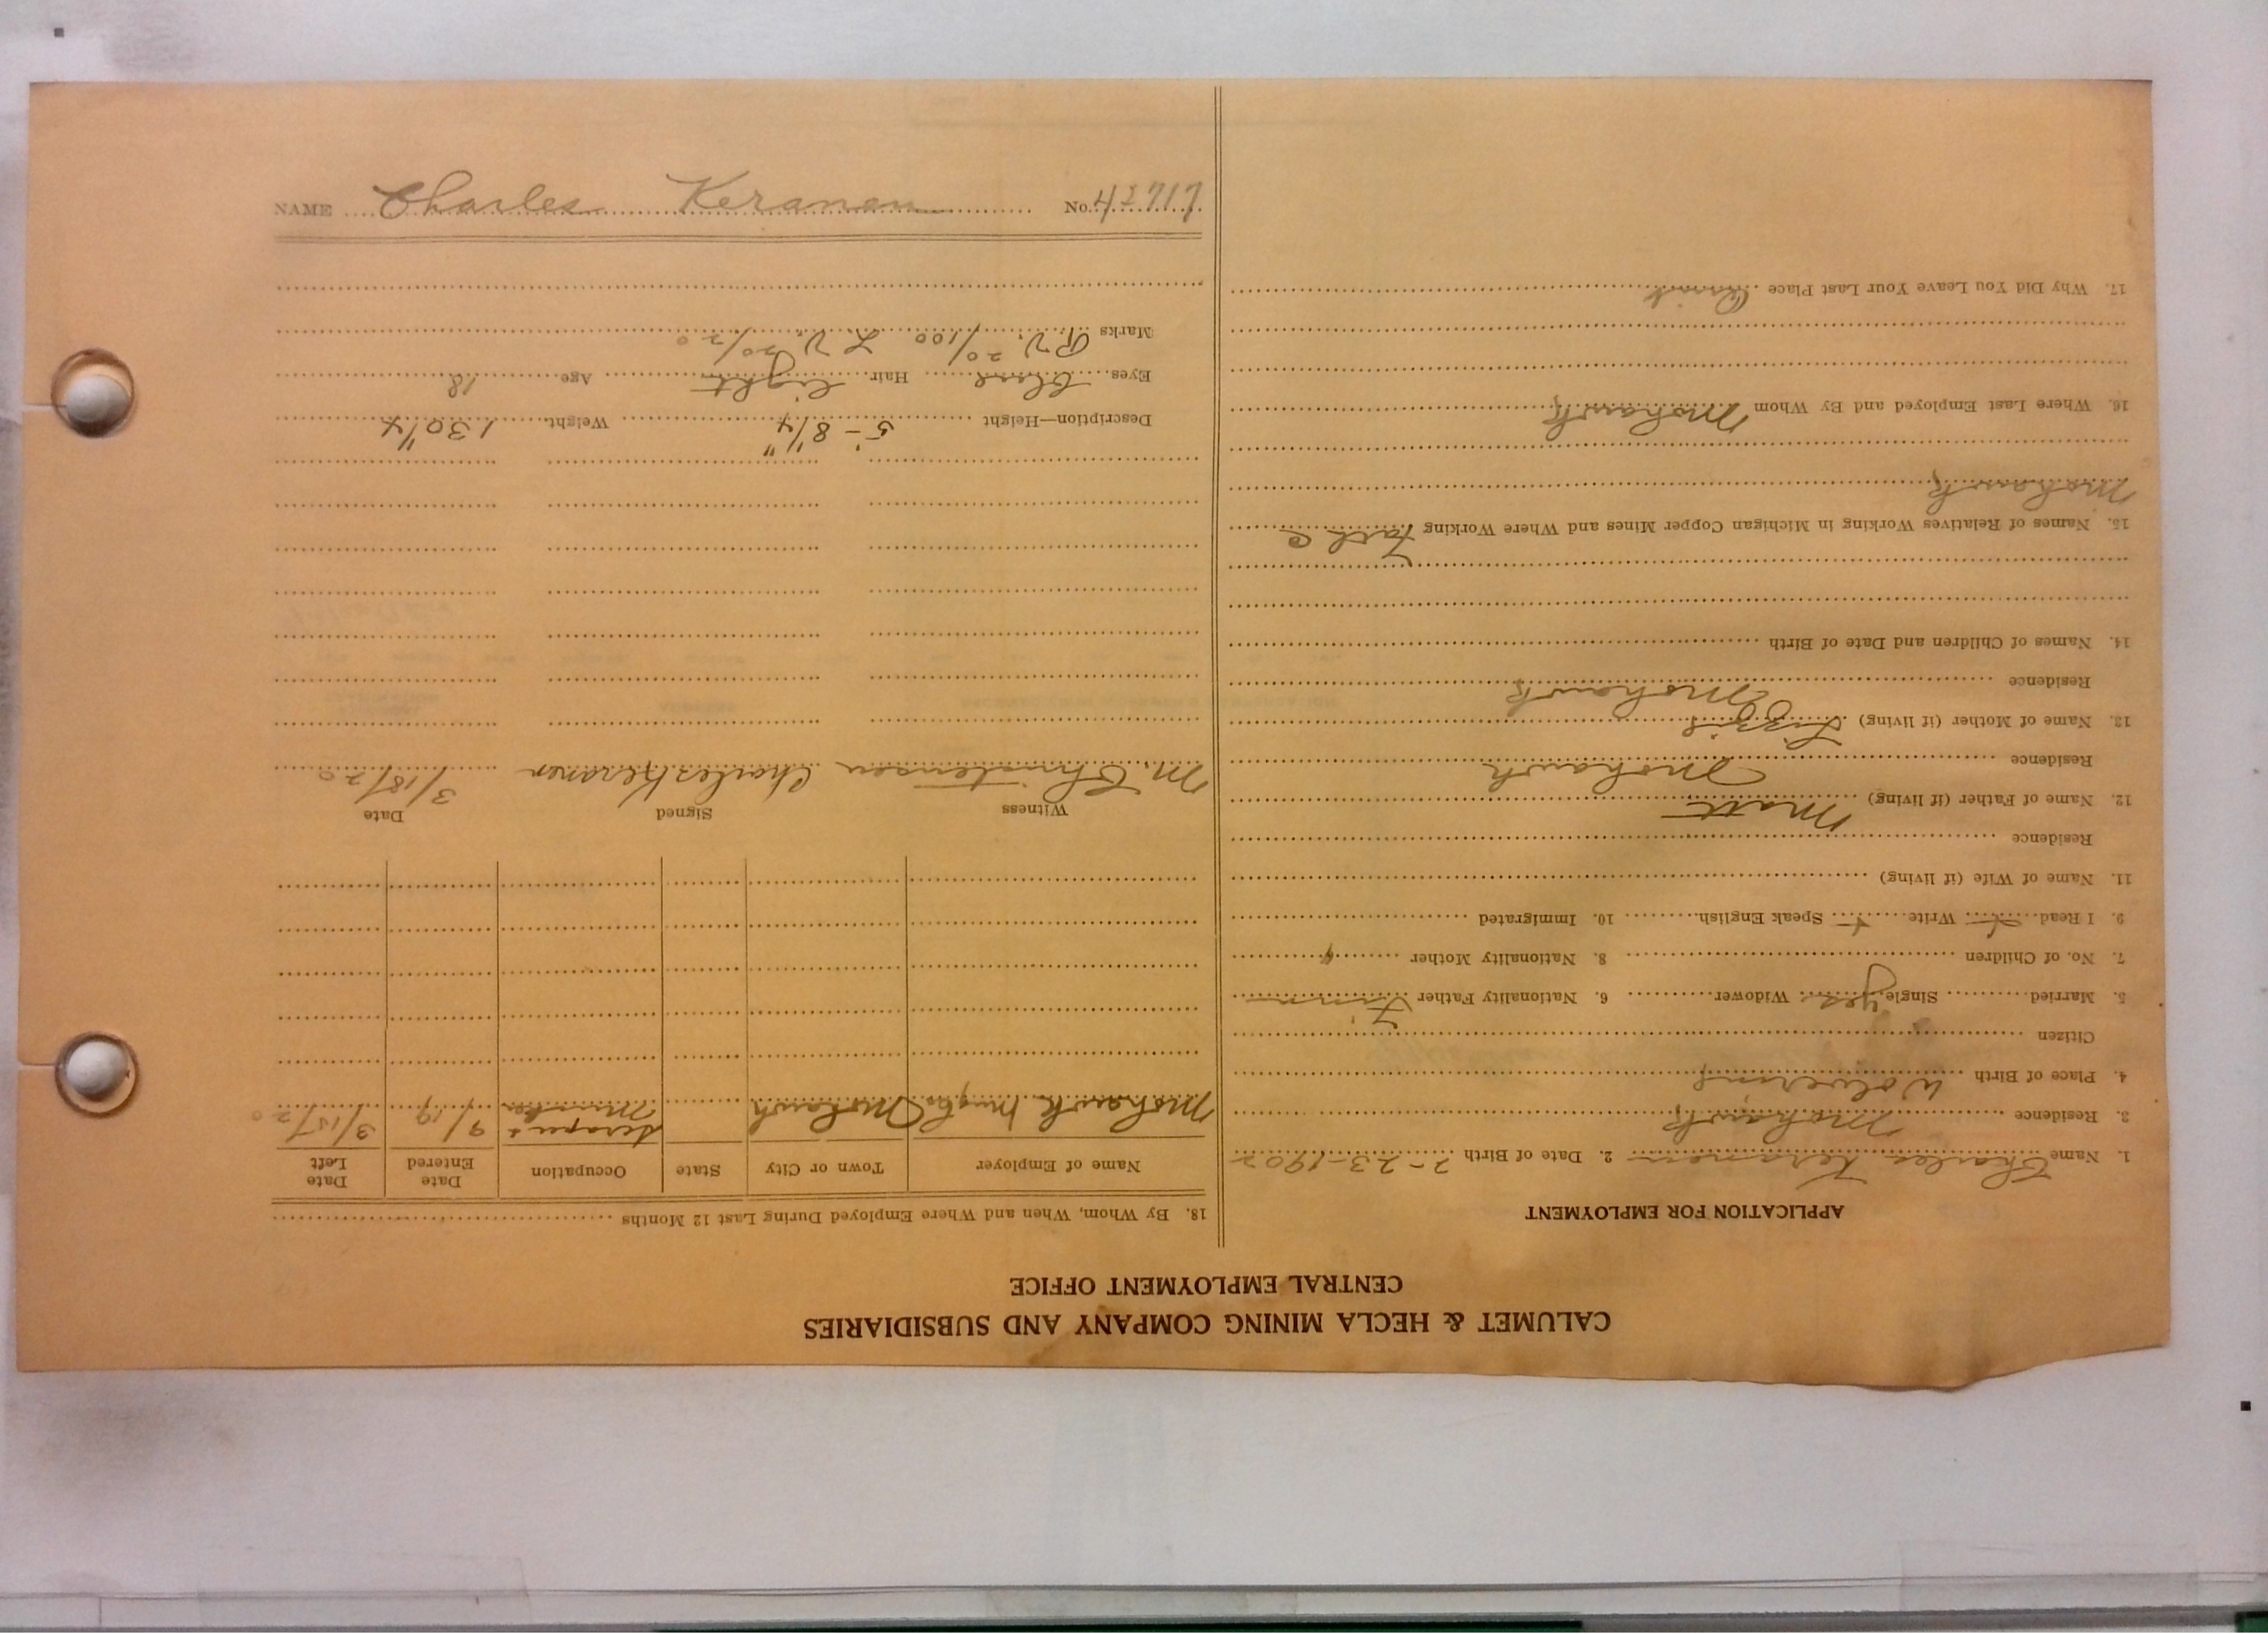 CALUMET & HECLA MINING COMPANY AND SUBSIDIARIES
CENTRAL EMPLOYMENT OFFICE
APPLICATION FOR EMPLOYMENT
1. Name Charles Keranen 2. Date of Birth 2-23-1902
3. Residence Mohawk
4. Place of Birth Wolverine
Citizen
5. Married Single yes Widower 6. Nationality Father Finn
7. No. of Children 8. Nationality Mother "
9. I Read Write Speak English 10. Immigrated
11. Name of Wife (if living)
Residence
12. Name of Father (if living) Matt
Residence Mohawk
13. Name of Mother (if living) Lizzie
Residence Mohawk
14. Names of Children and Date of Birth
15. Names of Relatives Working in Michigan Copper Mines and Where Working
Mohawk
16. Where Last Employed and By Whom Mohawk
17. Why Did You Leave Your Last Place
18. By Whom, When and Where Employed During Last 12 Months
Name of Employer Town or City State Occupation Date Entered Date Left
Mohawk Mohawk 9/19 3/15/20
Witness Signed Date
M. Christensen Charles Keranen 3/18/20
Description—Height 5'-8 1/4" Weight 130 1/4
Eyes Hair light Age 18
Marks R.V. 20/100 L.V. 20/20
NAME Charles Keranen No. 42717